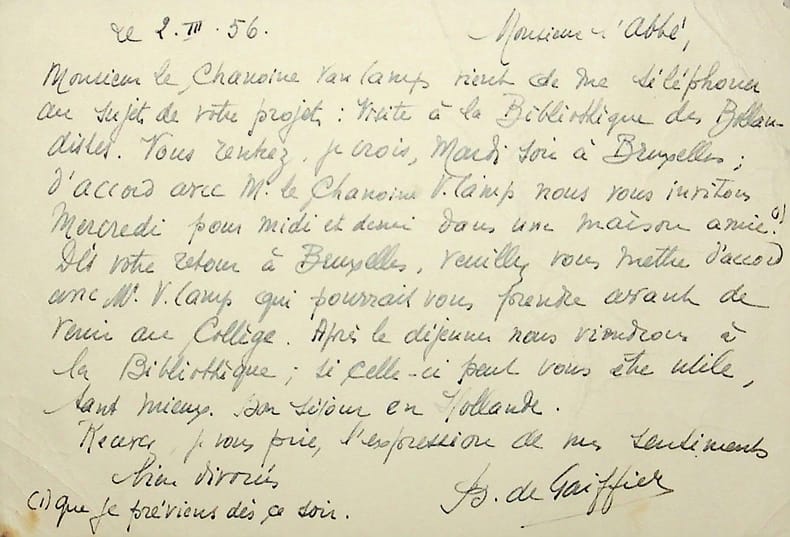 le 2.III.56.
Monsieur l'Abbé,
Monsieur le Chanoine Van Camp vient de me téléphoner
au sujet de votre projet : Visite à la Bibliothèque des Bollan-
distes. Vous rentrez, je crois, Mardi soir à Bruxelles ;
d'accord avec M. le Chanoine V. Camp nous vous invitons
Mercredi pour midi et demi dans une maison amie (1).
Dès votre retour à Bruxelles, veuillez vous mettre d'accord
avec Mr V. Camp qui pourrait vous prendre avant de
venir au Collège. Après le déjeuner nous viendrons à
la Bibliothèque ; si celle-ci peut vous être utile,
tant mieux. Bon séjour en Hollande.
Recevez, je vous prie, l'expression de mes sentiments
bien dévoués
B. de Gaiffier
(1) que je préviens dès ce soir.